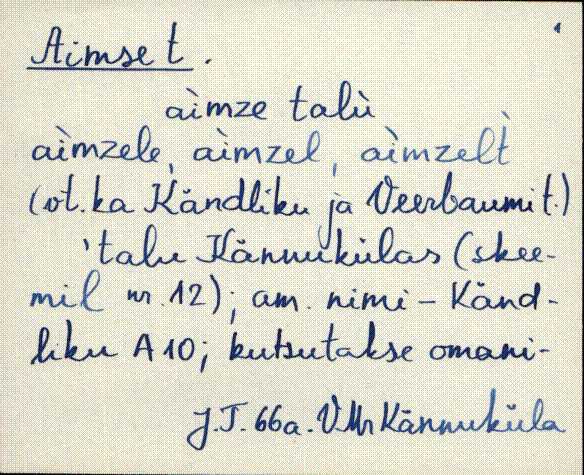 1
Aimse t.
aìmze talù
aìmzele, aìmzel, aìmzelt̀
(vt. ka Kändliku ja Veerbaumi t.)
'talu Kännukülas (skee-
mil nr. 12); am. nimi – Känd-
liku A10; kutsutakse omani-
J.T. 66a. VMr Kännuküla